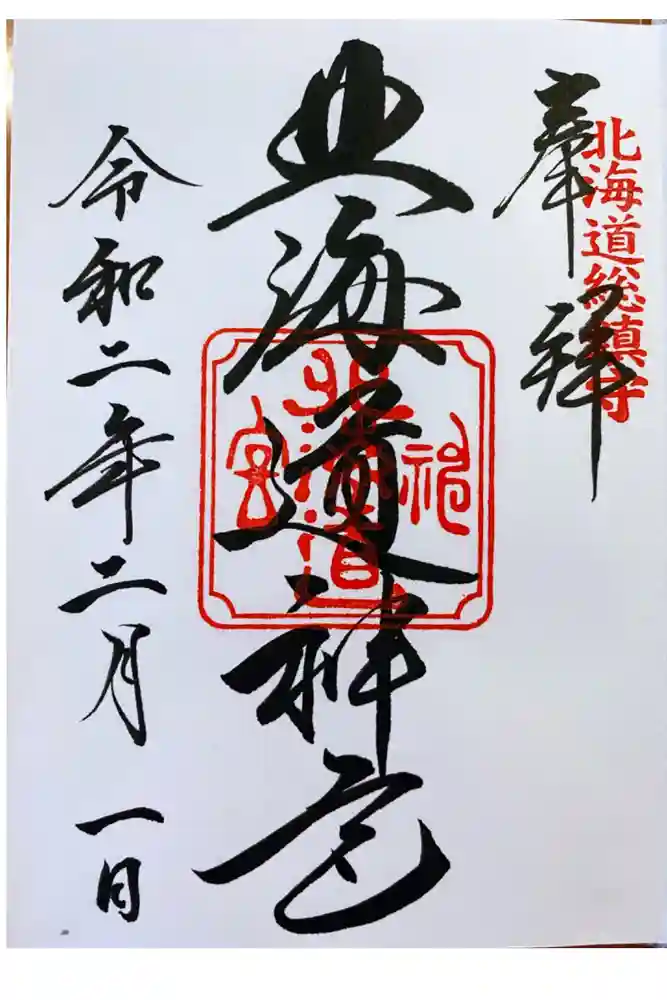 北海道総鎮守
奉拝
北海道神宮
北海道
神宮
令和二年二月一日